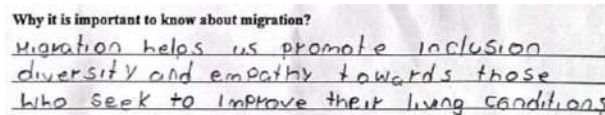 Why it is important to know about migration?
Migration helps us promote inclusion
diversity and empathy towards those
who seek to improve their living conditions